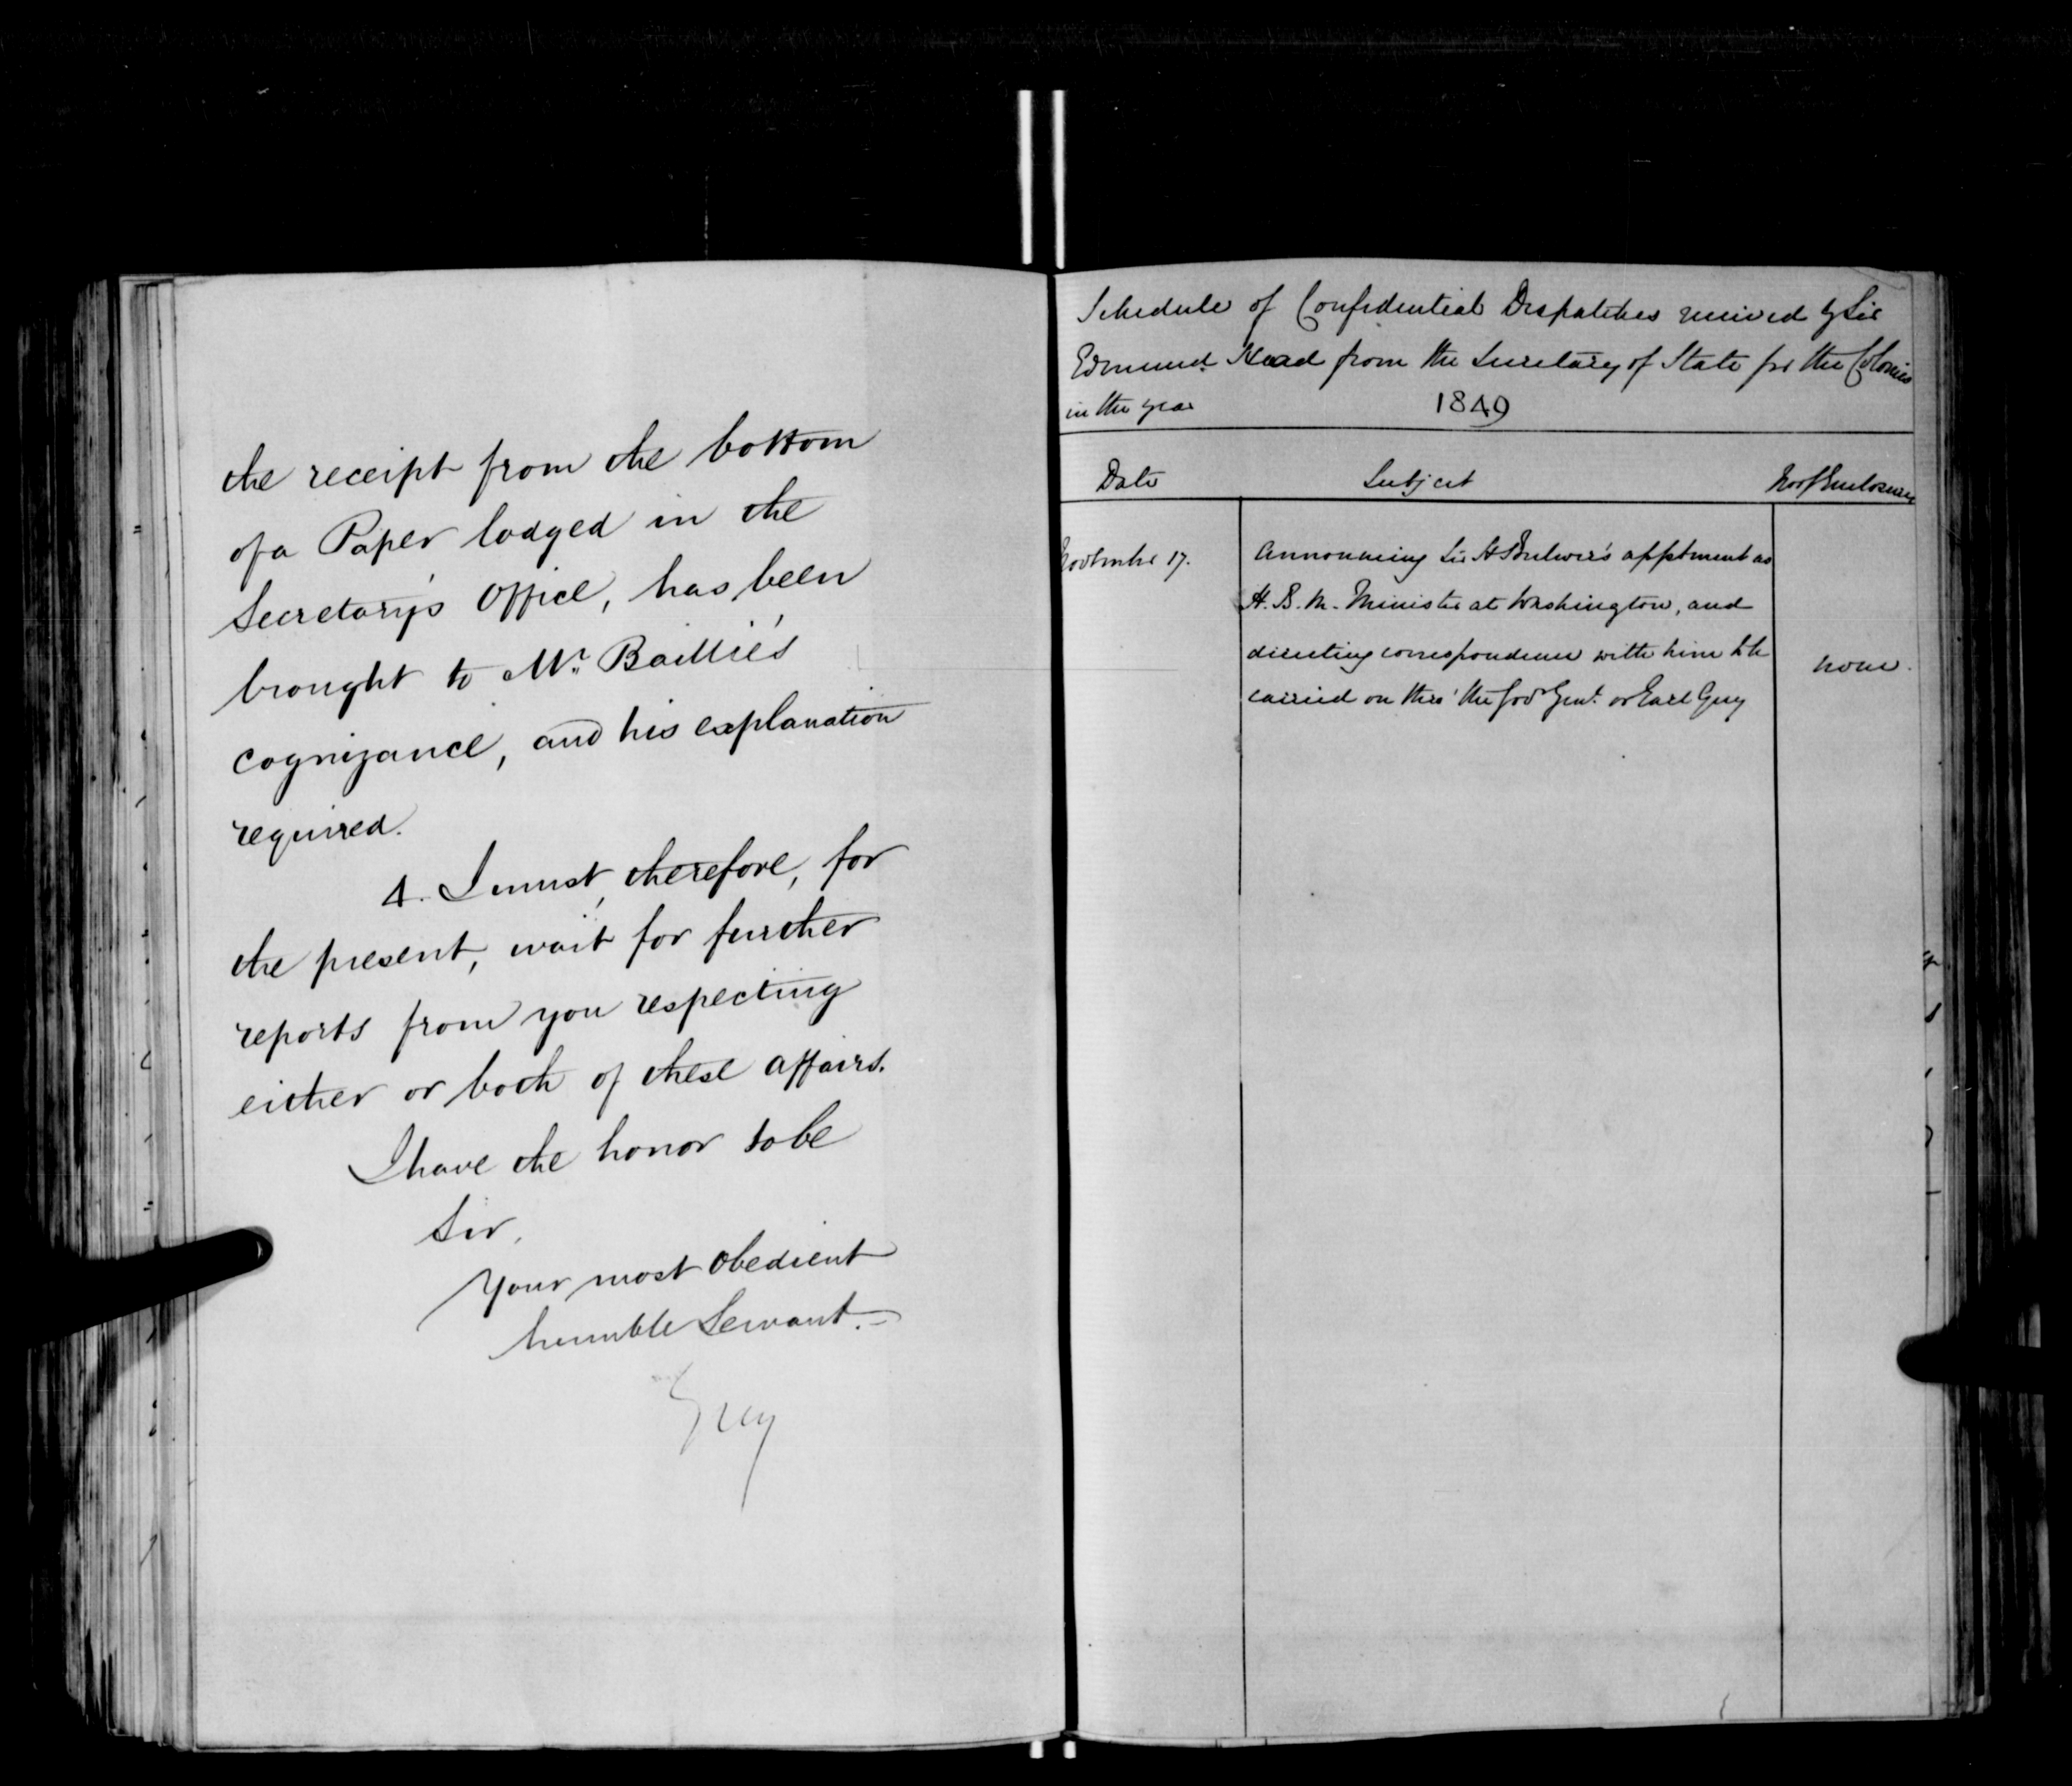 the receipt from the bottom
of a Paper lodged in the
Secretary's Office, has been
brought to Mr. Baillie's
cognizance, and his explanation
required.
4. I must, therefore, for
the present, wait for further
reports from you respecting
either or both of these affairs.
I have the honor to be
Sir,
Your most obedient
humble Servant.
Grey
Schedule of Confidential Despatches received by Sir
Edmund Head from the Secretary of State for the Colonies
in the year 1849
Date Subject No of Enclosures
November 17. Announcing Sir H Bulwer's apptment as
H. B. M. Minister at Washington, and
directing correspondence with him to be
carried on thro' the Gov Genl. or Earl Grey
none.